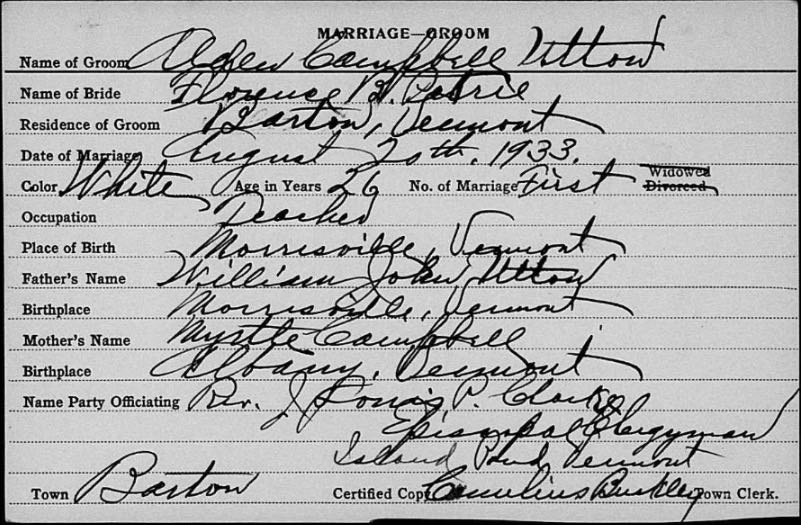 MARRIAGE—GROOM
Name of Groom Alden Campbell Utton
Name of Bride Florence B. Petrie
Residence of Groom Barton, Vermont
Date of Marriage August 20th, 1933.
Color White Age in Years 26 No. of Marriage First Widowed Divorced
Occupation Teacher
Place of Birth Morrisville, Vermont
Father's Name William John Utton
Birthplace Morrisville, Vermont
Mother's Name Myrtle Campbell
Birthplace Albany, Vermont
Name Party Officiating Rev. J Louis P. Clarke
Episcopal Clergyman
Island Pond Vermont
Town Barton Certified Copy Cornelius Buckley Town Clerk.